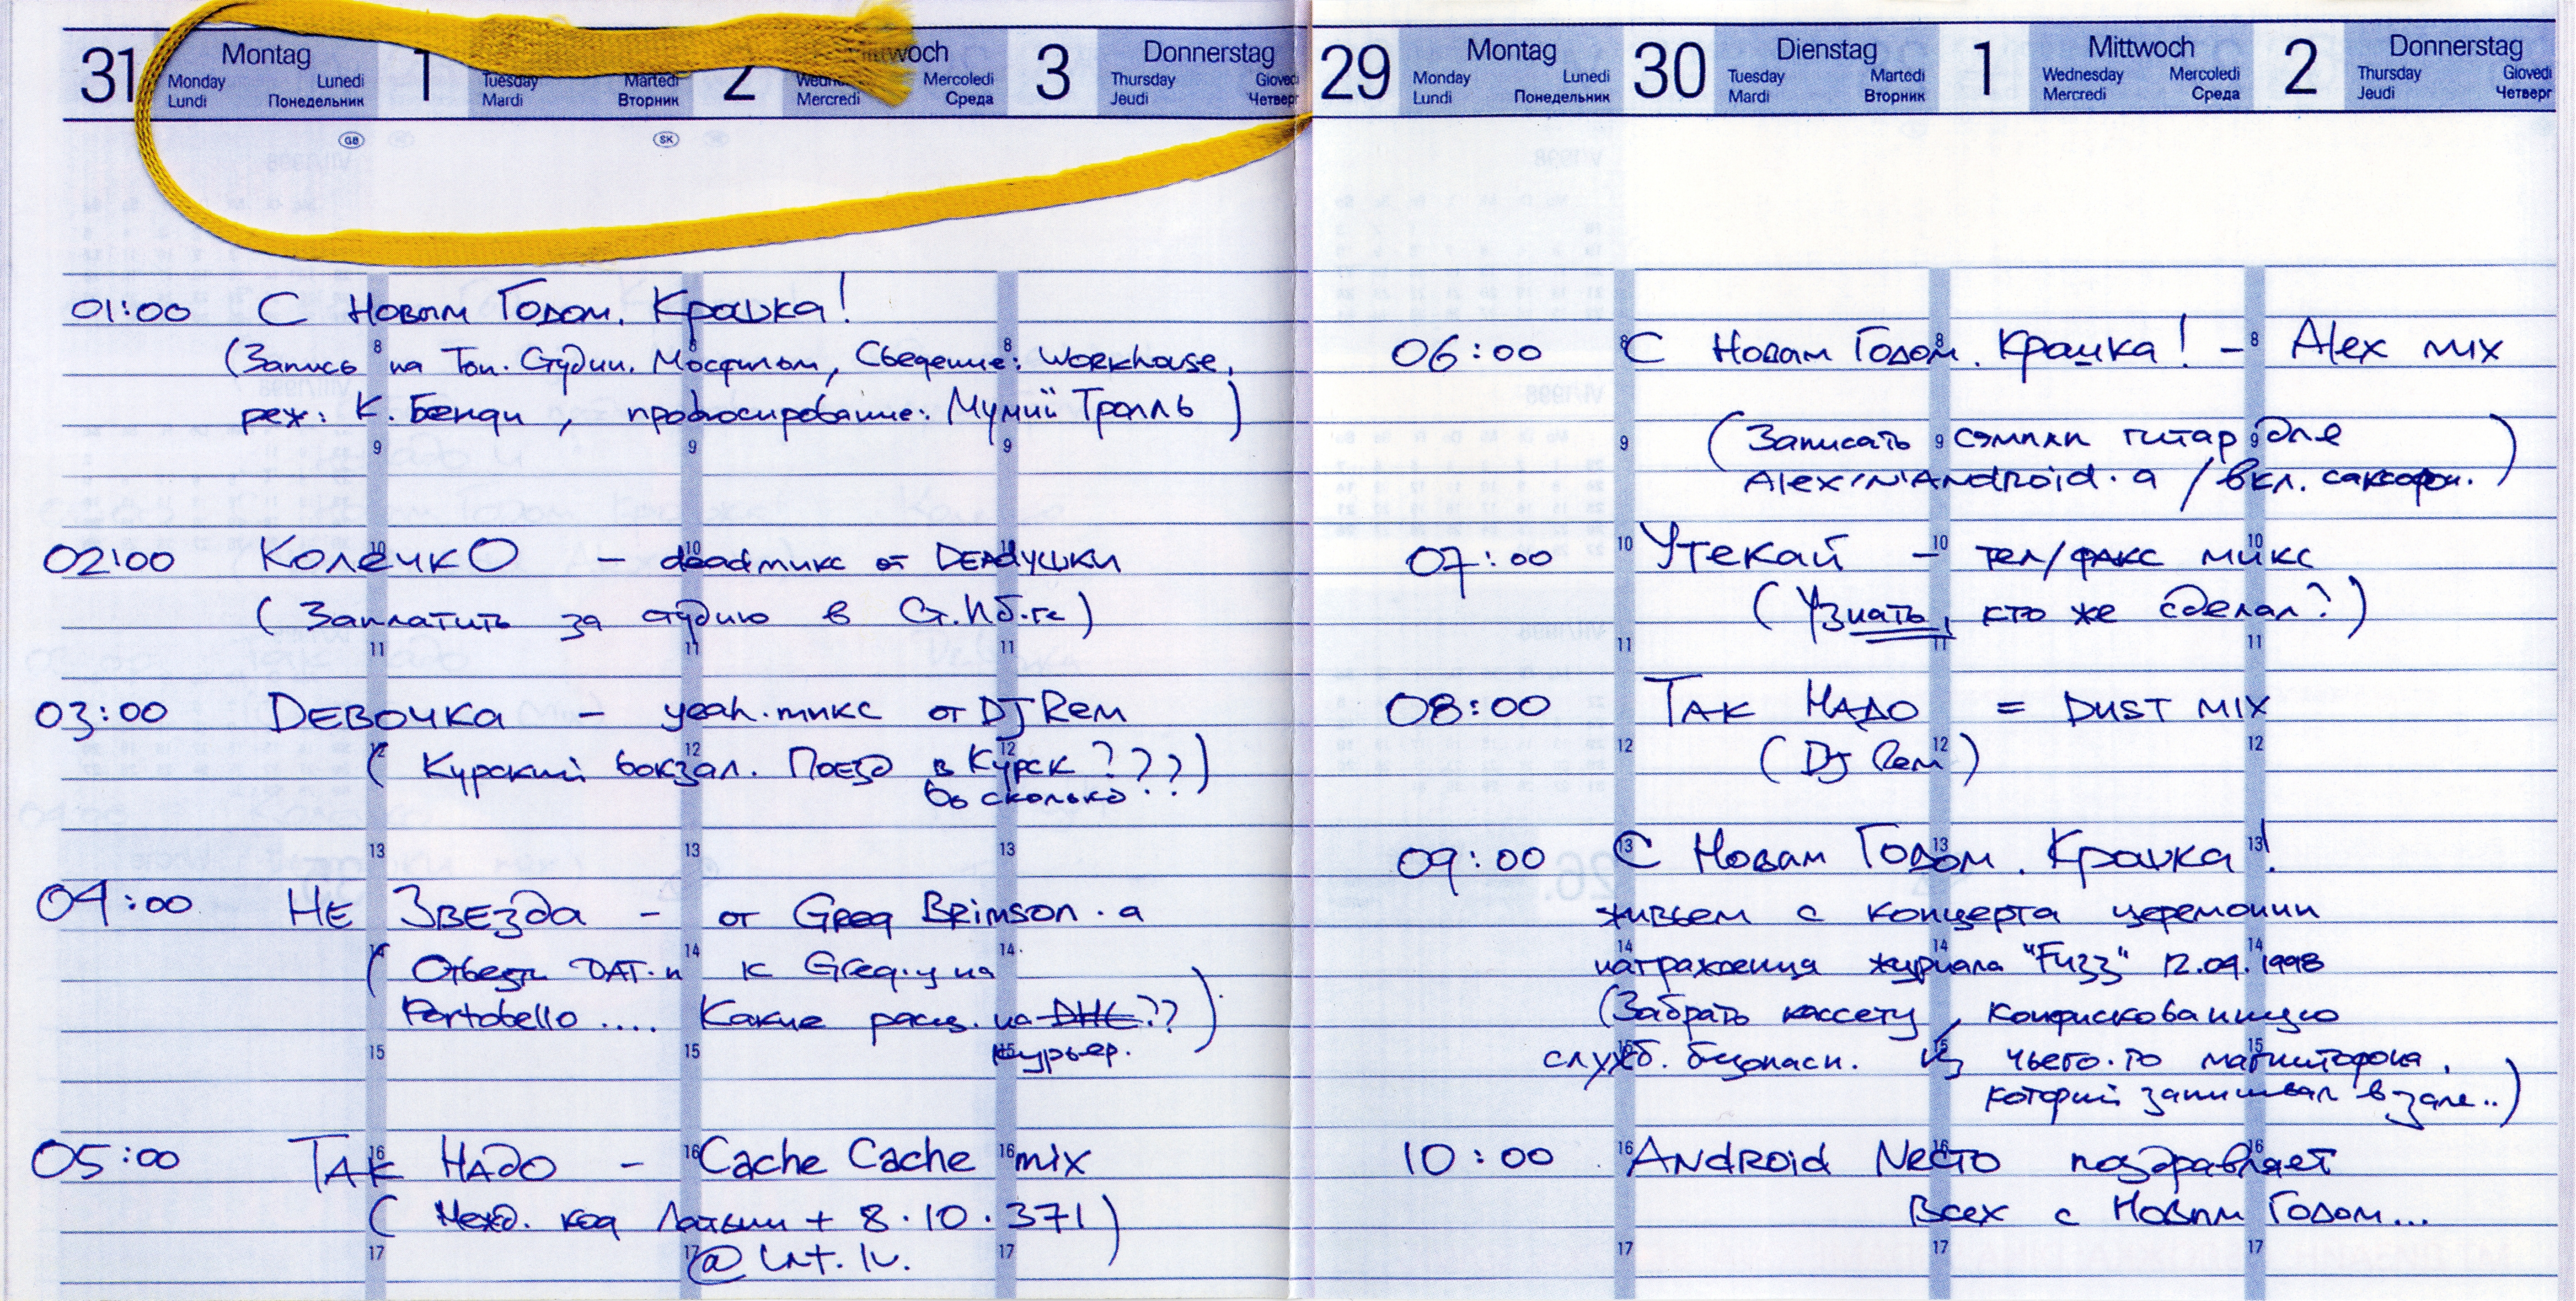 31 Montag 1 2 Mittwoch 3 Donnerstag
Monday Lunedi Tuesday Martedi Mercoledi Thursday Giovedi
Lundi Понедельник Mardi Вторник Mercredi Среда Jeudi Четверг
GB SK
01:00 С Новым Годом, Крошка!
(Запись на Тон. Студии, Мосфильм, Сведение: Workhouse,
реж: К. Бенди, продюсирование: Мумий Тролль)
02:00 КолечкО – deadмикс от DEADушки
(Заплатить за студию в Ст.Пб-ге)
03:00 Девочка – yeah.микс от DJ Rem
(Курский вокзал. Поезд в Курск???)
Во сколько??
04:00 Не Звезда – от Greg Brimson.а
(Отвезти DAT.ы к Greg.у на
Portobello.... Какие расц. на DHL??)
курьер.
05:00 Так Надо – Cache Cache mix
(Межд. код Латвии + 8.10.371)
@ Lat. lv.
29 Montag 30 Dienstag 1 Mittwoch 2 Donnerstag
Monday Lunedi Tuesday Martedi Wednesday Mercoledi Thursday Giovedi
Lundi Понедельник Mardi Вторник Mercredi Среда Jeudi Четверг
06:00 С Новым Годом, Крошка! – Alex mix
(Записать сэмплы гитар для
Alex'N'Android.а / вкл. саксофон.)
07:00 Утекай – тел/факс микс
(Узнать, кто же сделал?)
08:00 Так Надо = DUST MIX
(DJ Rem)
09:00 С Новым Годом, Крошка!
живьем с концерта церемонии
награждения журнала "Fuzz" 12.04.1998
(Забрать кассету, конфискованную
служб. безопасн. из чьего-то магнитофона,
который записывал в зале..)
10:00 Android Necto поздравляет
Всех с Новым Годом...
8 9 10 11 12 13 14 15 16 17